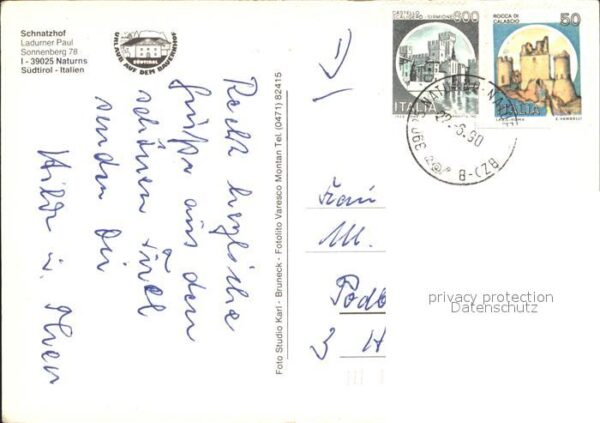 Schnatzhof
Ladurner Paul
Sonnenberg 78
I - 39025 Naturns
Südtirol - Italien
URLAUB AUF DEM BAUERNHOF
SÜDTIROL
Recht herzliche
Grüße aus dem
schönen Tirol
senden Dir
Hilde u.
Foto Studio Karl - Bruneck - Fotolito Varesco Montan Tel. (0471) 82415
CASTELLO
SCALIGERO - SIRMIONE
600
ITALIA
ROCCA DI
CALASCIO
50
ITALIA
I.P.Z.S. - ROMA
E. VANGELLI
6.90
B-CZB
Frau
M.
Podb
3 H
privacy protection
Datenschutz